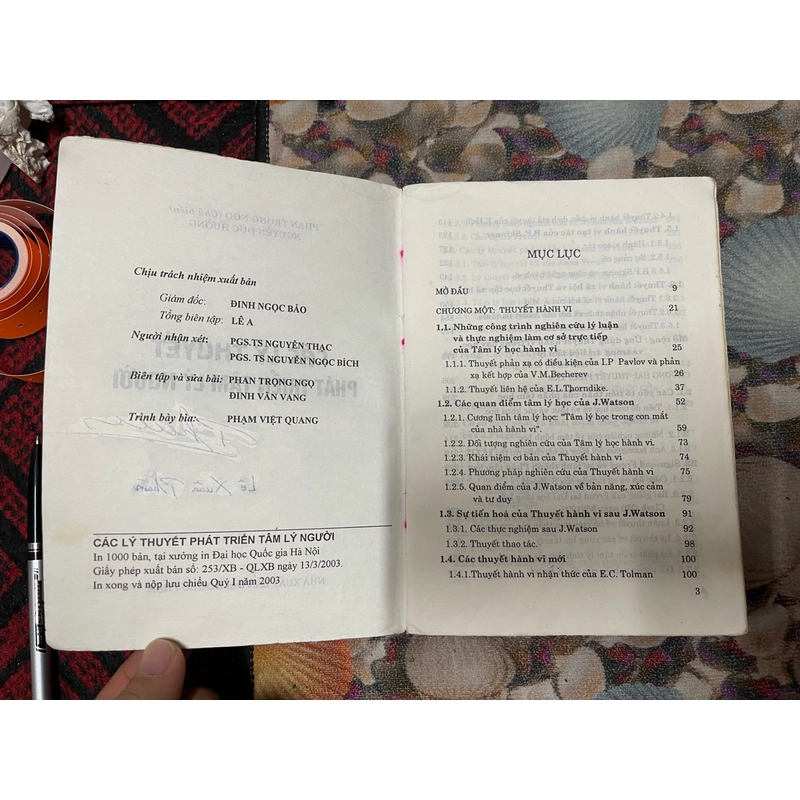 Chịu trách nhiệm xuất bản
Giám đốc: ĐINH NGỌC BẢO
Tổng biên tập: LÊ A
Người nhận xét: PGS.TS NGUYỄN THẠC
PGS. TS NGUYỄN NGỌC BÍCH
Biên tập và sửa bài: PHAN TRỌNG NGỌ
ĐINH VĂN VANG
Trình bày bìa: PHẠM VIỆT QUANG
Lê Xuân
CÁC LÝ THUYẾT PHÁT TRIỂN TÂM LÝ NGƯỜI
In 1000 bản, tại xưởng in Đại học Quốc gia Hà Nội
Giấy phép xuất bản số: 253/XB - QLXB ngày 13/3/2003.
In xong và nộp lưu chiểu Quý I năm 2003
MỤC LỤC
MỞ ĐẦU 9
CHƯƠNG MỘT: THUYẾT HÀNH VI 21
1.1. Những công trình nghiên cứu lý luận
và thực nghiệm làm cơ sở trực tiếp
của Tâm lý học hành vi 25
1.1.1. Thuyết phản xạ có điều kiện của I.P Pavlov và phản
xạ kết hợp của V.M.Becherev 26
1.1.2. Thuyết liên hệ của E.L.Thorndike. 37
1.2. Các quan điểm tâm lý học của J.Watson 52
1.2.1. Cương lĩnh tâm lý học: "Tâm lý học trong con mắt
của nhà hành vi". 59
1.2.2. Đối tượng nghiên cứu của Tâm lý học hành vi. 73
1.2.3. Khái niệm cơ bản của Thuyết hành vi 74
1.2.4. Phương pháp nghiên cứu của Thuyết hành vi 75
1.2.5. Quan điểm của J.Watson về bản năng, xúc cảm
và tư duy 79
1.3. Sự tiến hoá của Thuyết hành vi sau J.Watson 91
1.3.1. Các thực nghiệm sau J.Watson 92
1.3.2. Thuyết thao tác. 98
1.4. Các thuyết hành vi mới 100
1.4.1.Thuyết hành vi nhận thức của E.C. Tolman 100
3